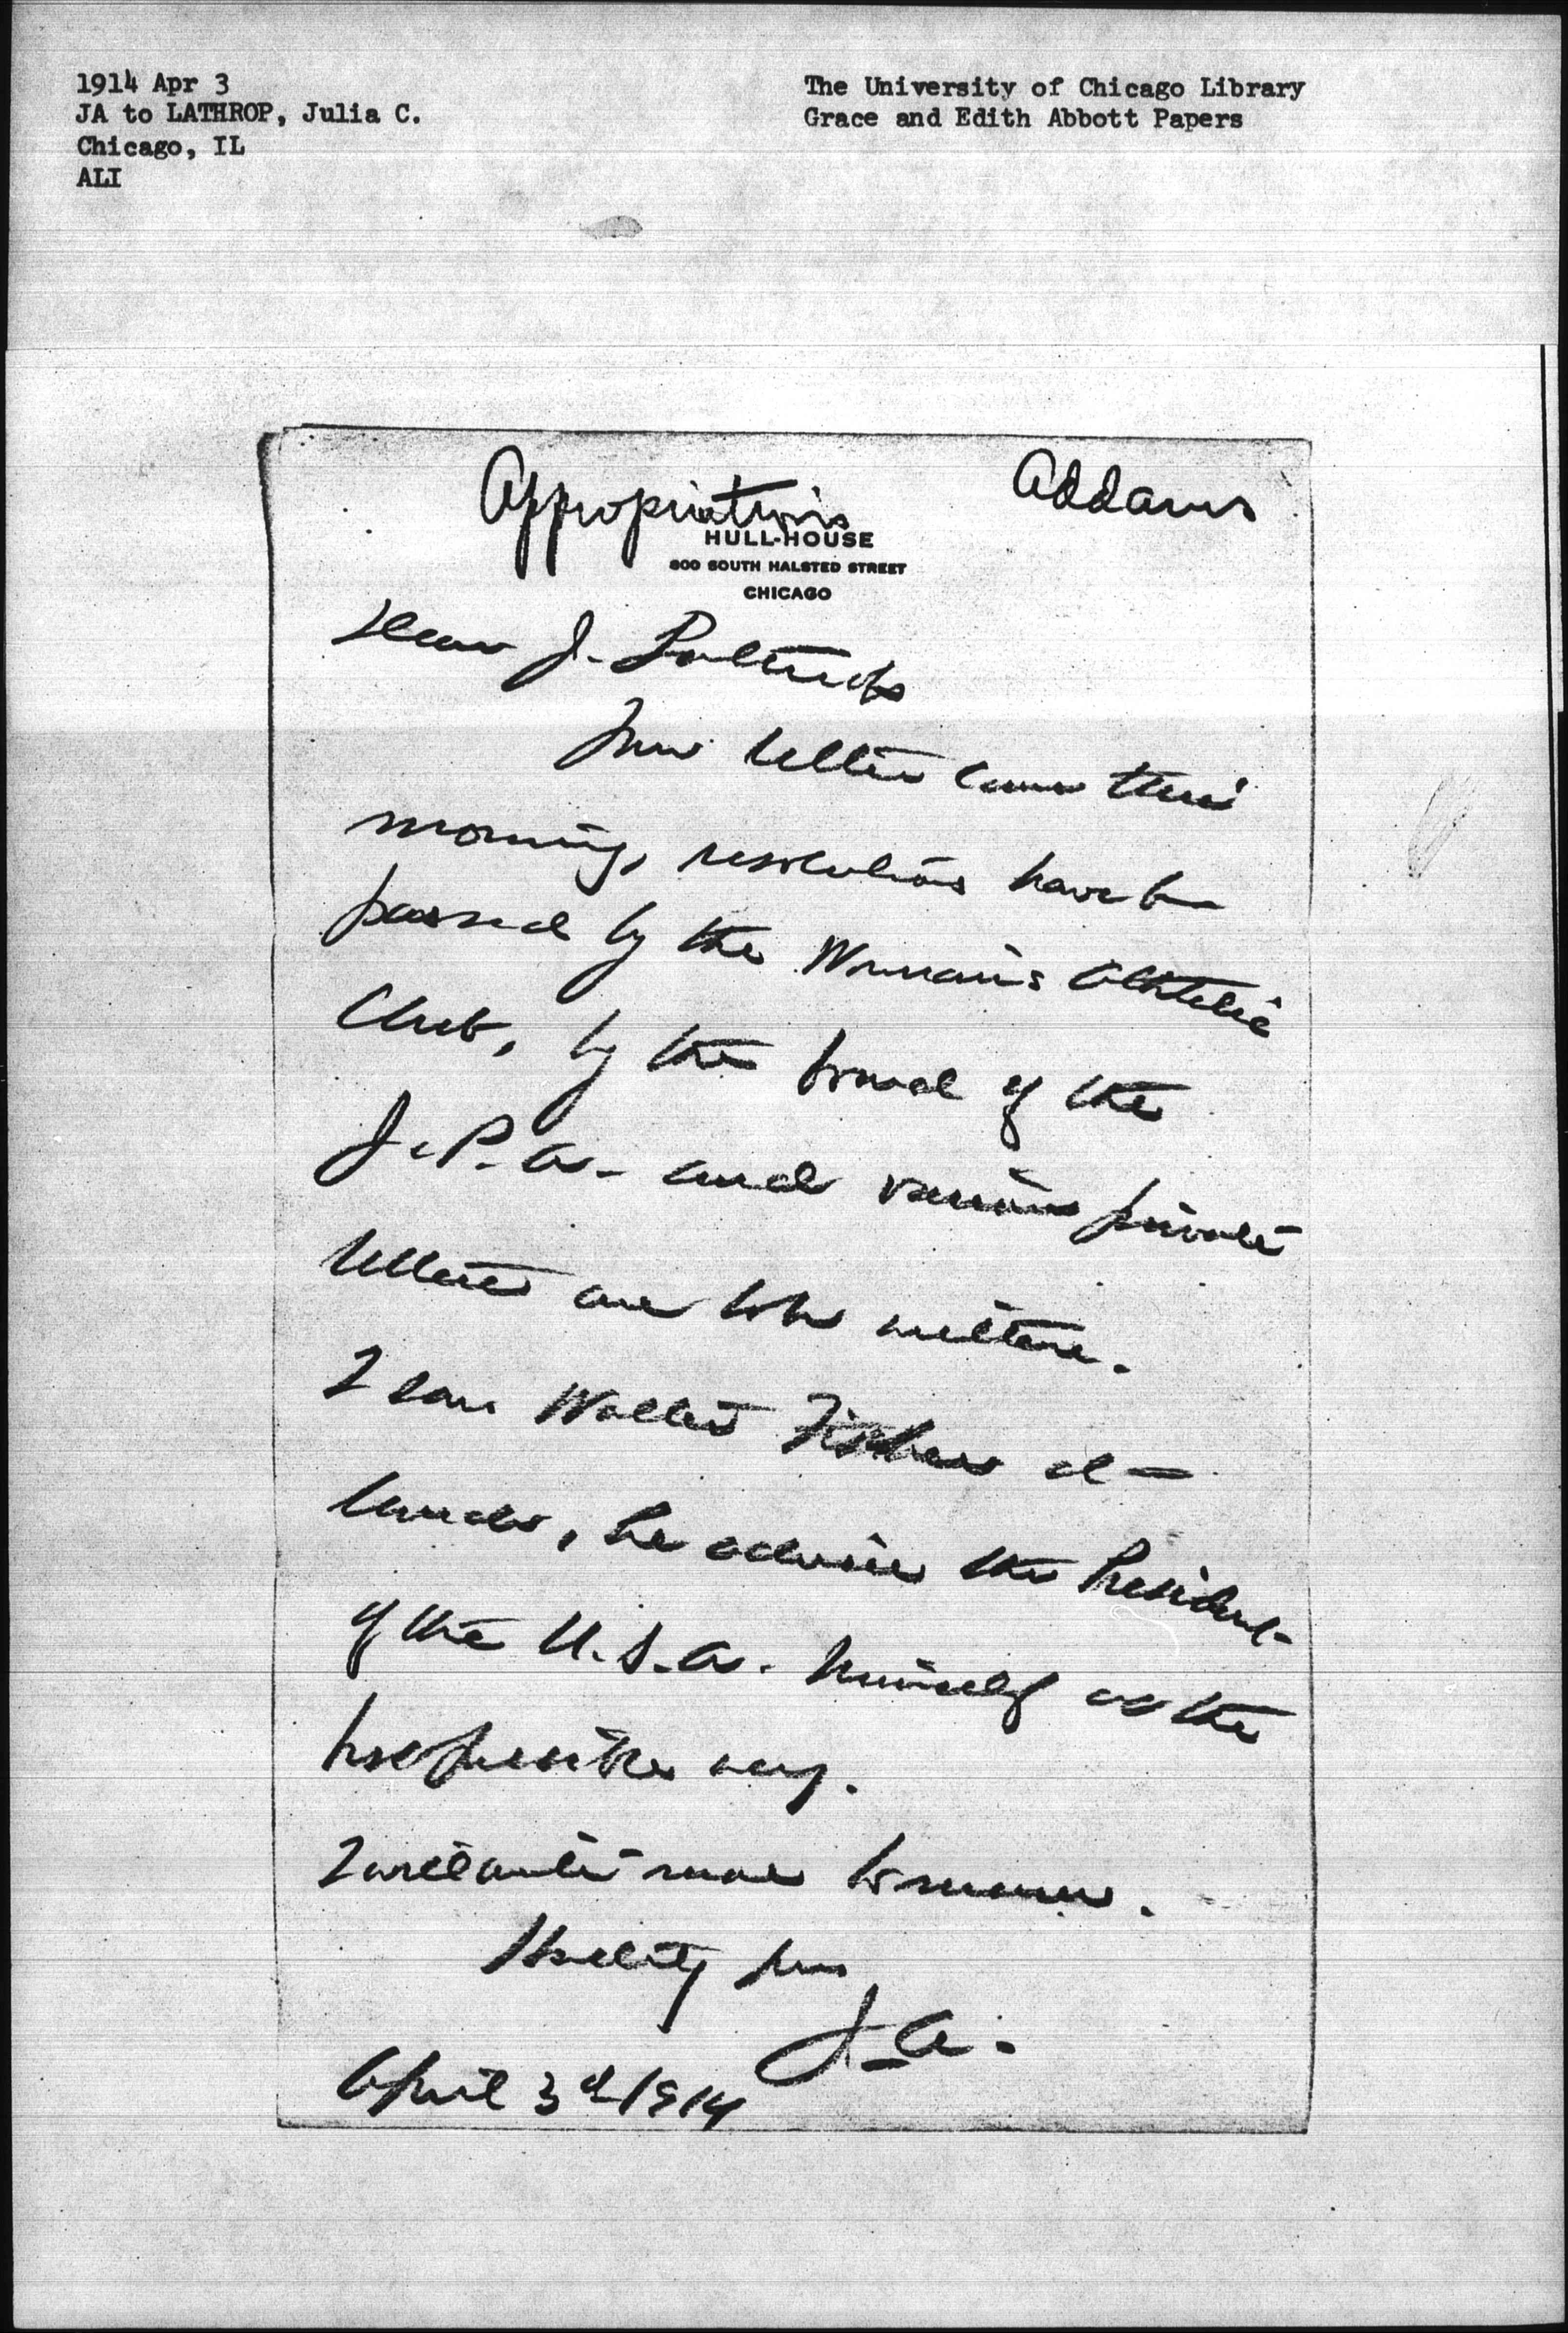 1914 Apr 3
JA to LATHROP, Julia C.
Chicago, IL
ALI
The University of Chicago Library
Grace and Edith Abbott Papers
Appropriations
Addams
HULL-HOUSE
800 SOUTH HALSTED STREET
CHICAGO
Dear J. Lathrop
Your letter came this
morning, resolutions have be
passed by the Woman's Athletic
Club, by the board of the
J.P.A. and various private
letters are to be written.
I saw Walter Fisher at
lunch, he advises the President
of the U.S.A. himself as the
best possible way.
I will write more tomorrow.
Hastily yrs
J.A.
April 3d 1914